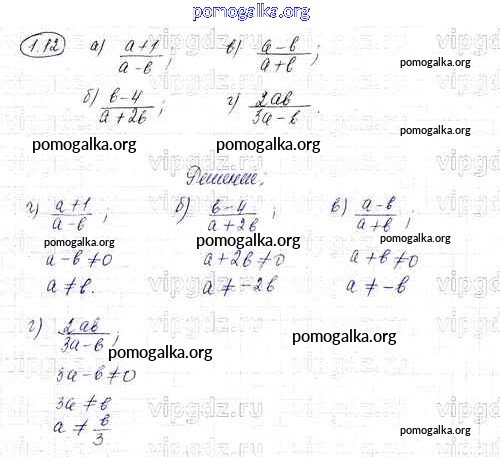 pomogalka.org
1.12 а) (a+1)/(a-в); в) (a-в)/(a+в);
б) (в-4)/(a+2в); г) 2aв/(3a-в).
pomogalka.org
pomogalka.org pomogalka.org
vipgdz.ru vipgdz.ru vipgdz.ru
Решение:
г) (a+1)/(a-в); б) (в-4)/(a+2в); в) (a-в)/(a+в);
pomogalka.org pomogalka.org pomogalka.org
a-в≠0 a+2в≠0 a+в≠0
a≠в. a≠-2в a≠-в
г) 2aв/(3a-в);
pomogalka.org
pomogalka.org
3a-в≠0
3a≠в
a≠в/3
pomogalka.org
pomogalka.org